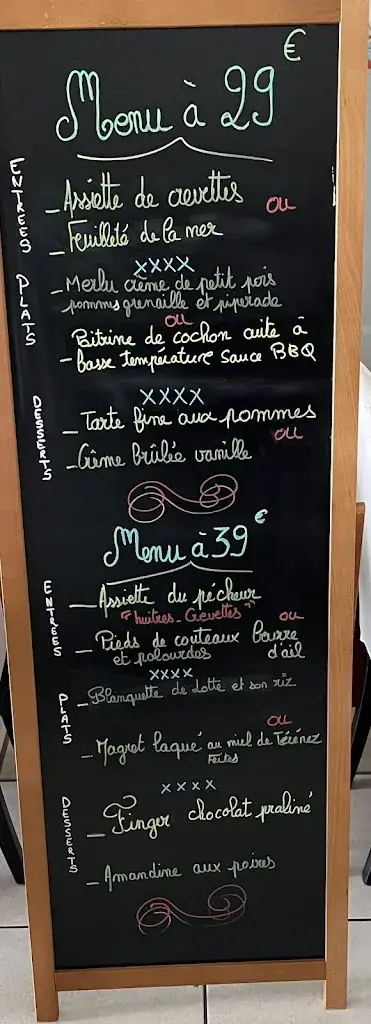 Menu à 29 €
ENTREES
_ Assiette de crevettes OU
_ Feuilleté de la mer
xxxx
PLATS
_ Merlu crème de petit pois
pommes grenaille et piperade
OU
Poitrine de cochon cuite à
_ basse température sauce BBQ
xxxx
DESSERTS
_ Tarte fine aux pommes
OU
_ Crème brûlée vanille
Menu à 39 €
ENTREES
_ Assiette du pécheur
"huitres - Crevettes" OU
_ Pieds de couteaux Beurre
et palourdes d'ail
xxxx
PLATS
_ Blanquette de Lotte et son riz
OU
_ Magret laqué au miel de Térénez
Frites
xxxx
DESSERTS
_ Finger chocolat praliné
_ Amandine aux poires